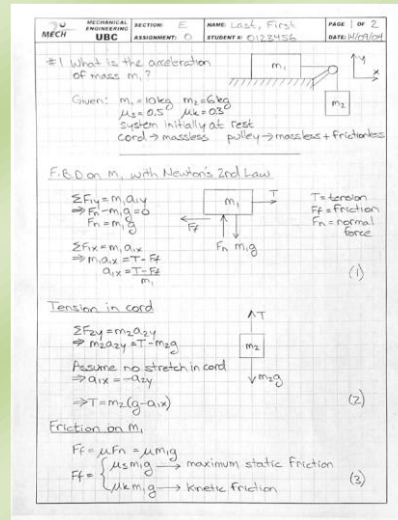 MECH
MECHANICAL ENGINEERING UBC
SECTION: E
NAME: Last, First
PAGE 1 OF 2
ASSIGNMENT: 0
STUDENT #: 0123456
DATE: 14/09/04
#1 What is the acceleration
of mass m₁?
m₁
y
x
m₂
Given: m₁ = 10kg m₂ = 6kg
μs = 0.5 μk = 0.3
system initially at rest
cord → massless pulley → massless + frictionless
F.B.D on m₁ with Newton's 2nd Law
ΣF₁y = m₁a₁y
⇒ Fn - m₁g = 0
Fn = m₁g
m₁
T
Ff
Fn m₁g
T = tension
Ff = friction
Fn = normal
force
ΣF₁x = m₁a₁x
⇒ m₁a₁x = T - Ff
a₁x = T - Ff / m₁
(1)
Tension in cord
ΣF₂y = m₂a₂y
⇒ m₂a₂y = T - m₂g
Assume no stretch in cord
⇒ a₁x = -a₂y
⇒ T = m₂(g - a₁x)
T
m₂
m₂g
(2)
Friction on m₁
Ff = μFn = μm₁g
Ff = { μs m₁g → maximum static friction
μk m₁g → kinetic friction
(3)